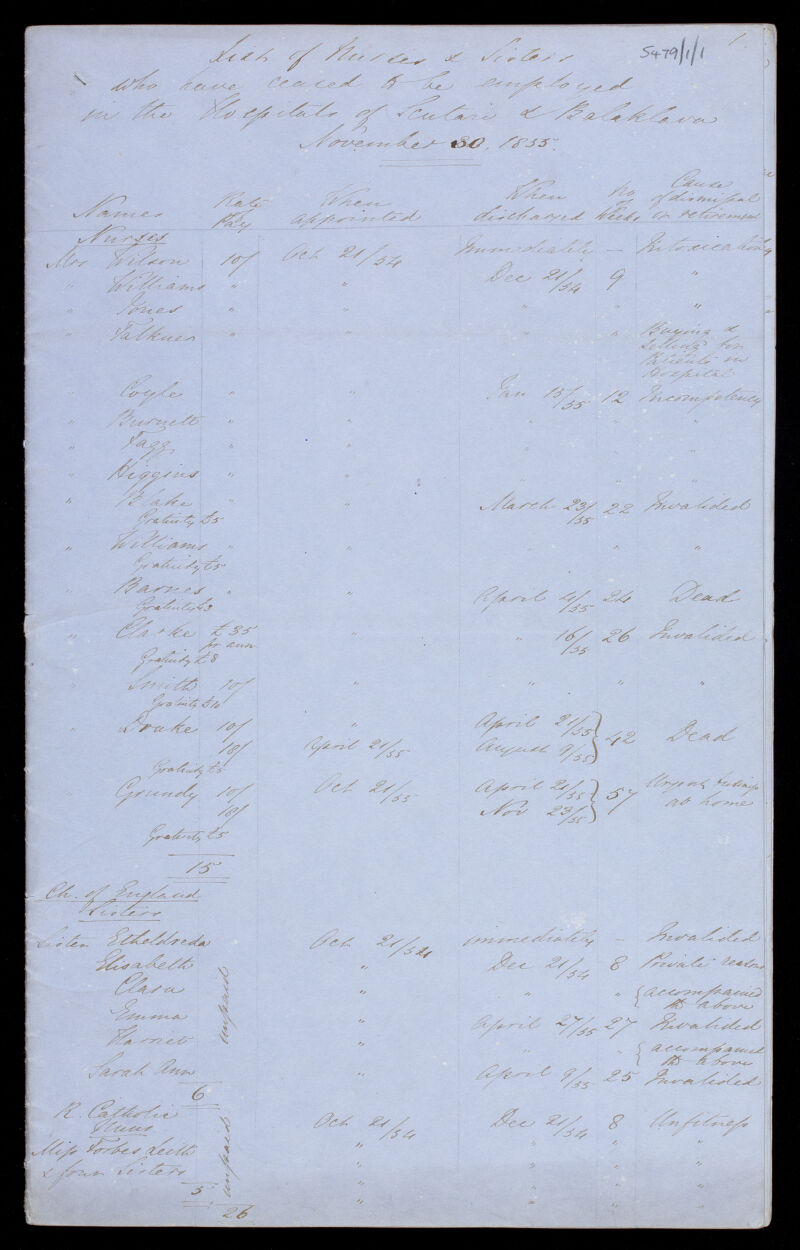 S479/1/1
1
List of Nurses & Sisters
who have ceased to be employed
in the Hospitals of Scutari & Balaklava
November 30. 1855.
Names Rate Pay When appointed When discharged No Weeks Cause of dismissal or retirement
Nurses
Mrs Wilson 10/ Oct 21/54 Immediately — Intoxication
" Williams " " Dec 21/54 9 "
" Jones " " " " "
" Falkner " " " " Buying & selling for Patients in Hospital
" Coyle " " Jan 15/55 12 Incompetency
" Burnett " " " " "
" Fagg " " " " "
" Higgins " " " " "
" Blake " " March 23/55 22 Invalided
Gratuity £5
" Williams " " " " "
Gratuity £5
" Barnes " " April 4/55 24 Dead
Gratuity £3
" Clarke £35 pr ann " " 16/55 26 Invalided
Gratuity £8
" Smith 10/ " " " "
Gratuity
" Drake 10/ " April 21/55
18/ April 21/55 August 9/55 } 42 Dead
Gratuity £5
" Grundy 10/ Oct 21/55 April 21/55 } 57 Urgent at home
18/ Nov 23/55
Gratuity £5
15
Ch. of England
Sisters
Sister Etheldreda unpaid Oct 21/54 immediately — Invalided
Elisabeth " Dec 21/54 8 Private reasons
Clara " " " { accompanied the above
Emma " April 27/55 27 Invalided
Harriet " " " { accompanied the above
Sarah Ann " April 9/55 25 Invalided
6
R. Catholic
Nuns unpaid Oct 21/54 Dec 21/54 8 Unfitness
Miss Forbes Leith " " " "
& four Sisters " " " "
5 " " " "
26